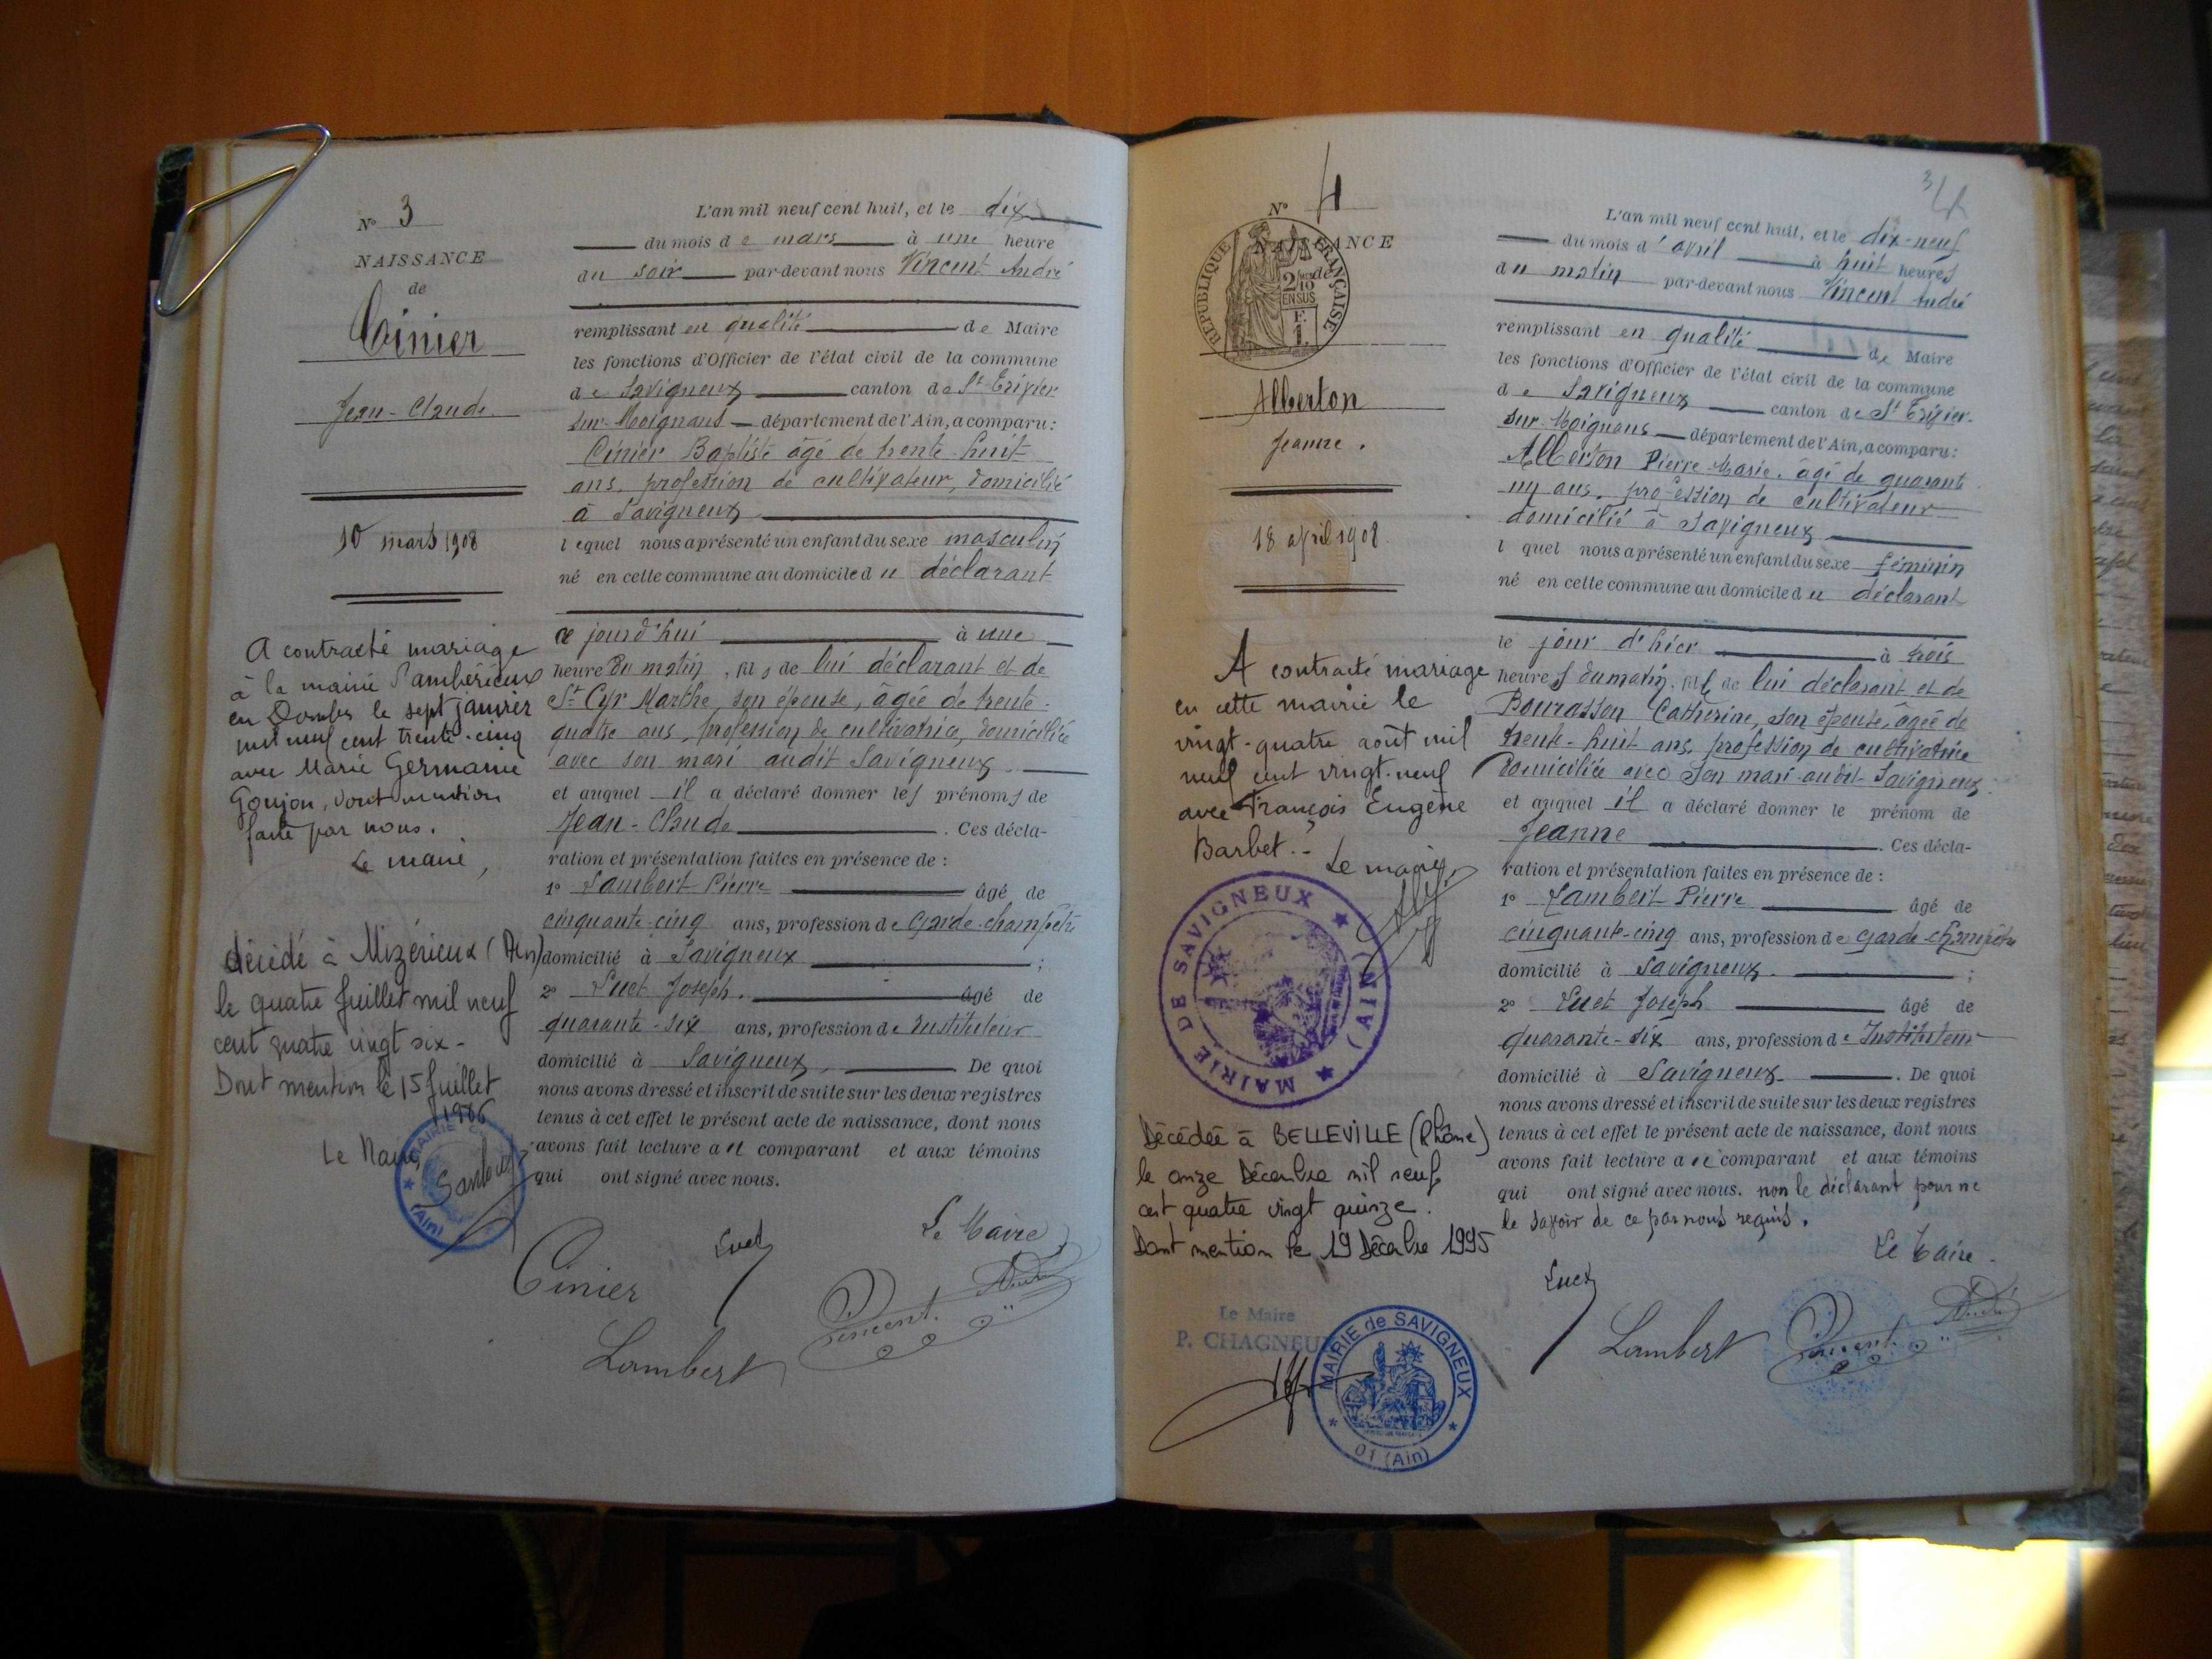 N° 3
NAISSANCE
de
Cinier
Jean-Claude
10 mars 1908
A contracté mariage
à la mairie d'Ambérieux
en Dombes le sept janvier
mil neuf cent trente-cinq
avec Marie Germanie
Goujon, dont mention
faite par nous.
Le maire,
décédé à Mizérieux (Ain)
le quatre Juillet mil neuf
cent quatre vingt six -
Dont mention le 15 Juillet
1986
Le Maire,
L'an mil neuf cent huit, et le dix
du mois de mars à une heure
du soir par-devant nous Vincent André
remplissant en qualité de Maire
les fonctions d'Officier de l'état civil de la commune
de Savigneux canton de St Trivier
sur Moignans département de l'Ain, a comparu :
Cinier Baptiste âgé de trente-huit
ans, profession de cultivateur, domicilié
à Savigneux
lequel nous a présenté un enfant du sexe masculin
né en cette commune au domicile du déclarant
ce jourd'hui à une
heure du matin, fils de lui déclarant et de
St Cyr Marthe, son épouse, âgée de trente-
quatre ans, profession de cultivatrice, domiciliée
avec son mari audit Savigneux
et auquel il a déclaré donner les prénoms de
Jean-Claude . Ces décla-
ration et présentation faites en présence de :
1° Lambert Pierre âgé de
cinquante-cinq ans, profession de Garde-champêtre
domicilié à Savigneux ;
2° Luet Joseph. âgé de
quarante-six ans, profession de Instituteur
domicilié à Savigneux, De quoi
nous avons dressé et inscrit de suite sur les deux registres
tenus à cet effet le présent acte de naissance, dont nous
avons fait lecture au comparant et aux témoins
qui ont signé avec nous.
Le Maire
Luet
Cinier
Vincent André
Lambert
N° 4
NAISSANCE
de
RÉPUBLIQUE FRANÇAISE
2/10 EN SUS
F. 1.
Alberton
Jeanne.
18 avril 1908.
A contracté mariage
en cette mairie le
vingt-quatre août mil
neuf cent vingt-neuf
avec François Eugène
Barbet.-
Le maire,
MAIRIE DE SAVIGNEUX (AIN)
Décédée à BELLEVILLE (Rhône)
le onze Décembre mil neuf
cent quatre vingt quinze.
Dont mention le 19 Décembre 1995
Le Maire
P. CHAGNEUX
MAIRIE de SAVIGNEUX
01 (Ain)
L'an mil neuf cent huit, et le dix-neuf
du mois d'avril à huit heures
du matin par-devant nous Vincent André
remplissant en qualité de Maire
les fonctions d'Officier de l'état civil de la commune
de Savigneux canton de St Trivier-
sur-Moignans département de l'Ain, a comparu :
Alberton Pierre-Marie, âgé de quarante
un ans, profession de cultivateur
domicilié à Savigneux
lquel nous a présenté un enfant du sexe féminin
né en cette commune au domicile du déclarant
le jour d'hier à trois
heures du matin, fille de lui déclarant et de
Bourasson Catherine, son épouse, âgée de
trente-huit ans, profession de cultivatrice
domiciliée avec son mari audit Savigneux.
et auquel il a déclaré donner le prénom de
Jeanne . Ces décla-
ration et présentation faites en présence de :
1° Lambert Pierre âgé de
cinquante-cinq ans, profession de garde champêtre
domicilié à Savigneux. ;
2° Luet Joseph âgé de
quarante-six ans, profession de Instituteur
domicilié à Savigneux . De quoi
nous avons dressé et inscrit de suite sur les deux registres
tenus à cet effet le présent acte de naissance, dont nous
avons fait lecture au comparant et aux témoins
qui ont signé avec nous. non le déclarant pour ne
le savoir de ce par nous requis.
Le Maire.
Luet
Lambert
Vincent André